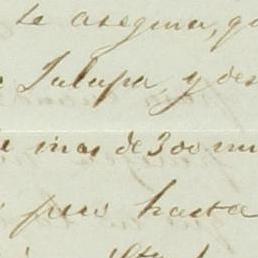 te asegura, qu
Jalapa, y des
mas de 300 mu
pero hasta